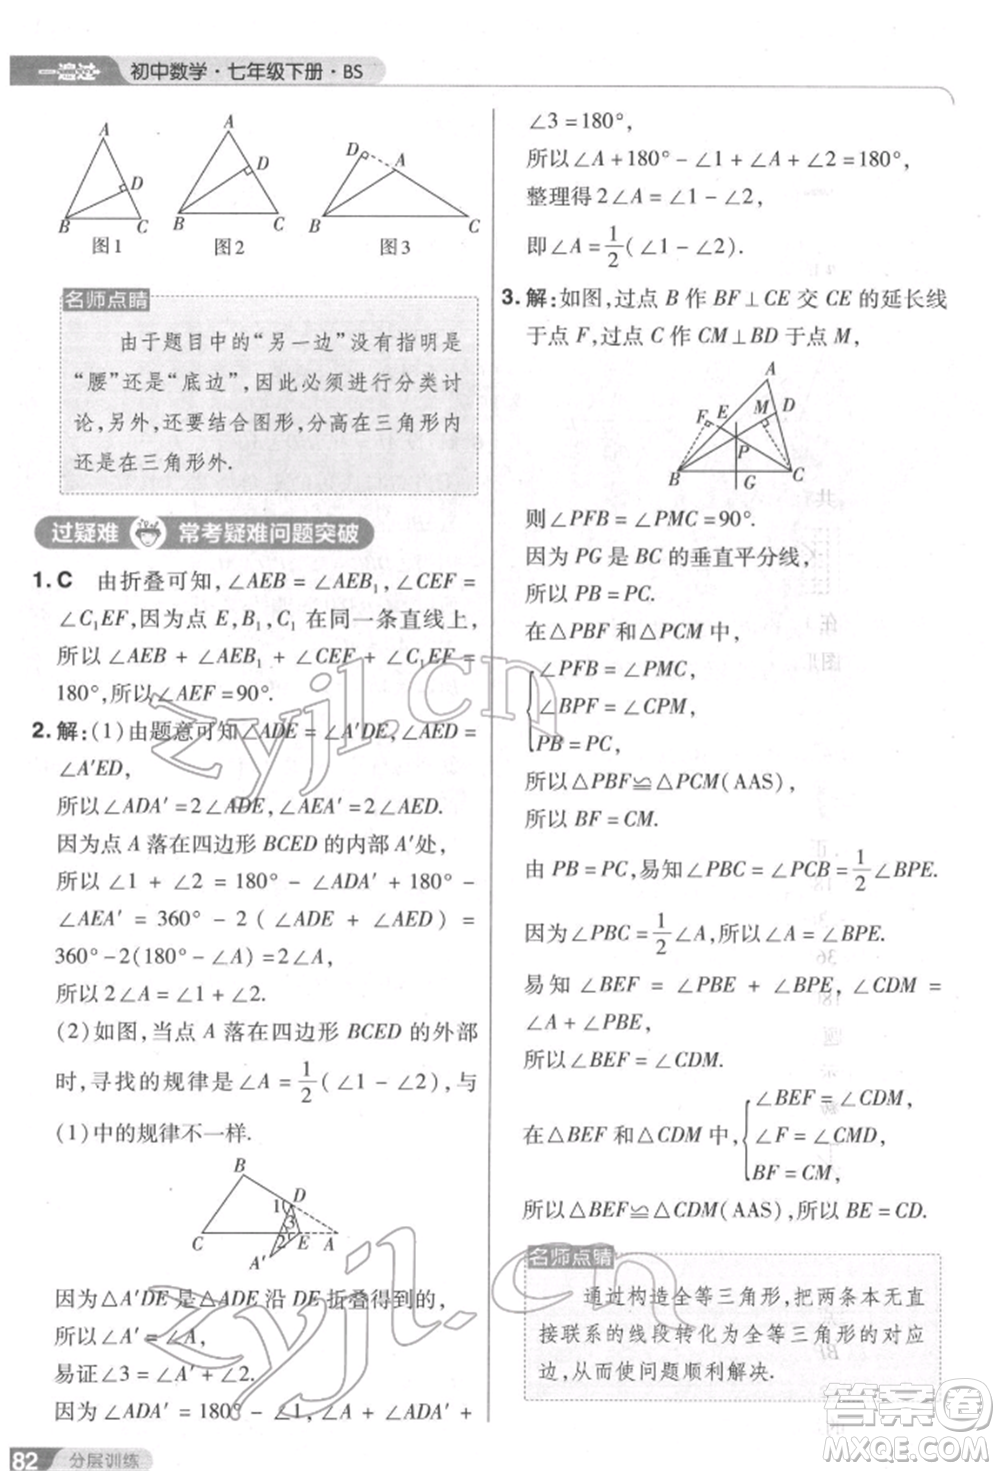 一遍过 初中数学·七年级下册·BS
A
D
B
C
图1
A
D
B
C
图2
D
A
B
C
图3
名师点睛
由于题目中的“另一边”没有指明是
“腰”还是“底边”,因此必须进行分类讨
论,另外,还要结合图形,分高在三角形内
还是在三角形外.
过疑难 常考疑难问题突破
1. C 由折叠可知,∠AEB = ∠AEB₁,∠CEF =
∠C₁EF,因为点 E,B₁,C₁ 在同一条直线上,
所以 ∠AEB + ∠AEB₁ + ∠CEF + ∠C₁EF =
180°,所以∠AEF = 90°.
2. 解:(1)由题意可知∠ADE = ∠A′DE,∠AED =
∠A′ED,
所以∠ADA′ = 2∠ADE,∠AEA′ = 2∠AED.
因为点 A 落在四边形 BCED 的内部 A′处,
所以 ∠1 + ∠2 = 180° - ∠ADA′ + 180° -
∠AEA′ = 360° - 2(∠ADE + ∠AED) =
360° - 2(180° - ∠A) = 2∠A,
所以 2∠A = ∠1 + ∠2.
(2)如图,当点 A 落在四边形 BCED 的外部
时,寻找的规律是∠A = 1/2(∠1 - ∠2),与
(1)中的规律不一样.
B
1
D
3
C
2
E
A
A′
因为△A′DE 是△ADE 沿 DE 折叠得到的,
所以∠A′ = ∠A,
易证∠3 = ∠A′ + ∠2,
因为 ∠ADA′ = 180° - ∠1,∠A +∠ADA′ +
∠3 = 180°,
所以∠A + 180° - ∠1 + ∠A + ∠2 = 180°,
整理得 2∠A = ∠1 - ∠2,
即∠A = 1/2(∠1 - ∠2).
3. 解:如图,过点 B 作 BF⊥CE 交 CE 的延长线
于点 F,过点 C 作 CM⊥BD 于点 M,
A
F
E
M
D
P
B
G
C
则∠PFB = ∠PMC = 90°.
因为 PG 是 BC 的垂直平分线,
所以 PB = PC.
在△PBF 和△PCM 中,
∠PFB = ∠PMC,
∠BPF = ∠CPM,
PB = PC,
所以△PBF≌△PCM(AAS),
所以 BF = CM.
由 PB = PC,易知∠PBC = ∠PCB = 1/2∠BPE.
因为∠PBC = 1/2∠A,所以∠A = ∠BPE.
易知 ∠BEF = ∠PBE + ∠BPE,∠CDM =
∠A + ∠PBE,
所以∠BEF = ∠CDM.
∠BEF = ∠CDM,
在△BEF 和△CDM 中,∠F = ∠CMD,
BF = CM,
所以△BEF≌△CDM(AAS),所以 BE = CD.
名师点睛
通过构造全等三角形,把两条本无直
接联系的线段转化为全等三角形的对应
边,从而使问题顺利解决.
82 分层训练
zyjl.cn
zyjl.cn
答案卷
MXQE.COM